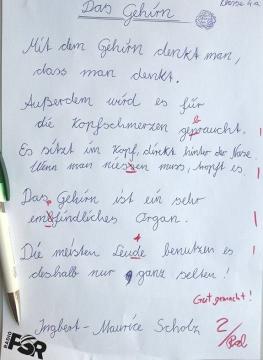 Klasse 4a
Das Gehürn
Mit dem Gehürn denkt man,
dass man denkt.
Außerdem wird es für
die Kopfschmerzen gepraucht.
b
Es sitzt im Kopf, direkt hinter der Nase.
Wenn man niessen muss, tropft es.
Das Gehürn ist ein sehr
emfindliches Organ.
Die meisten Leude benutzen es
t
deshalb nur ganz selten!
Gut gemacht!
Ingbert-Maurice Scholz
2
RADIO FSR